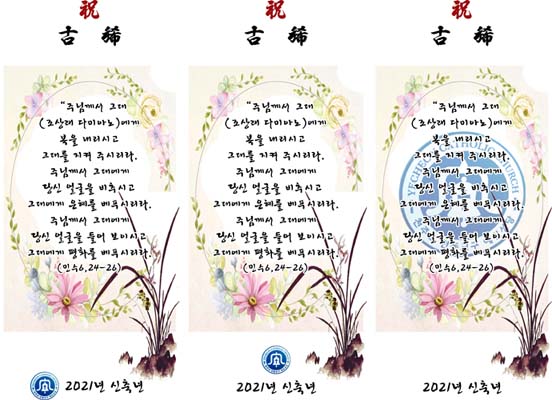 祝
古 稀
"주님께서 그대
(조상래 다미아노)에게
복을 내리시고
그대를 지켜 주시리라.
주님께서 그대에게
당신 얼굴을 비추시고
그대에게 은혜를 베푸시리라.
주님께서 그대에게
당신 얼굴을 들어 보이시고
그대에게 평화를 베푸시리라.
(민수6,24-26)
2021년 신축년
祝
古 稀
"주님께서 그대
(조상래 다미아노)에게
복을 내리시고
그대를 지켜 주시리라.
주님께서 그대에게
당신 얼굴을 비추시고
그대에게 은혜를 베푸시리라.
주님께서 그대에게
당신 얼굴을 들어 보이시고
그대에게 평화를 베푸시리라.
(민수6,24-26)
2021년 신축년
祝
古 稀
"주님께서 그대
(조상래 다미아노)에게
복을 내리시고
그대를 지켜 주시리라.
주님께서 그대에게
당신 얼굴을 비추시고
그대에게 은혜를 베푸시리라.
주님께서 그대에게
당신 얼굴을 들어 보이시고
그대에게 평화를 베푸시리라.
(민수6,24-26)
CATHOLIC CHURCH
2021년 신축년